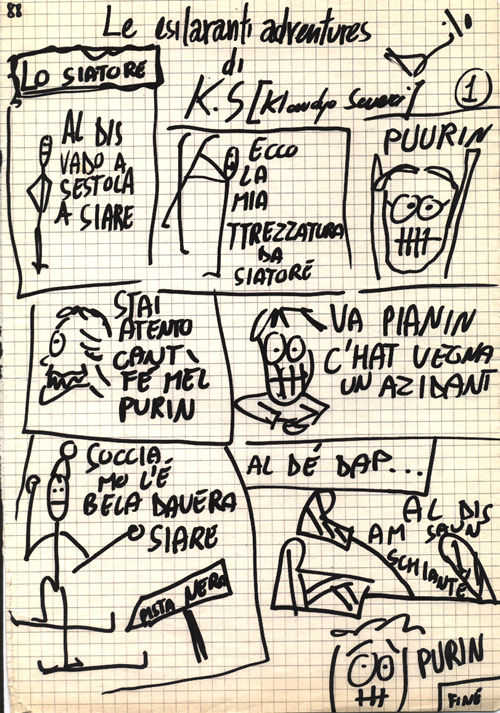 88
Le esilaranti adventures
di
K.S [Klaudjo Severi]
1
LO SIATORE
AL DIS
VADO A
SESTOLA
A SIARE
ECCO
LA
MIA
TTREZZATURA
DA
SIATORE
PUURIN
STAI
ATENTO
CANT
FÉ MEL
PURIN
VA PIANIN
C'HAT VEGNA
UN AZIDANT
SUCCIA
MO L'È
BELA DAVERA
SIARE
PISTA NERA
AL DÉ DAP...
AL DIS
AM SAUN
SCHIANTÉ
PURIN
FINE